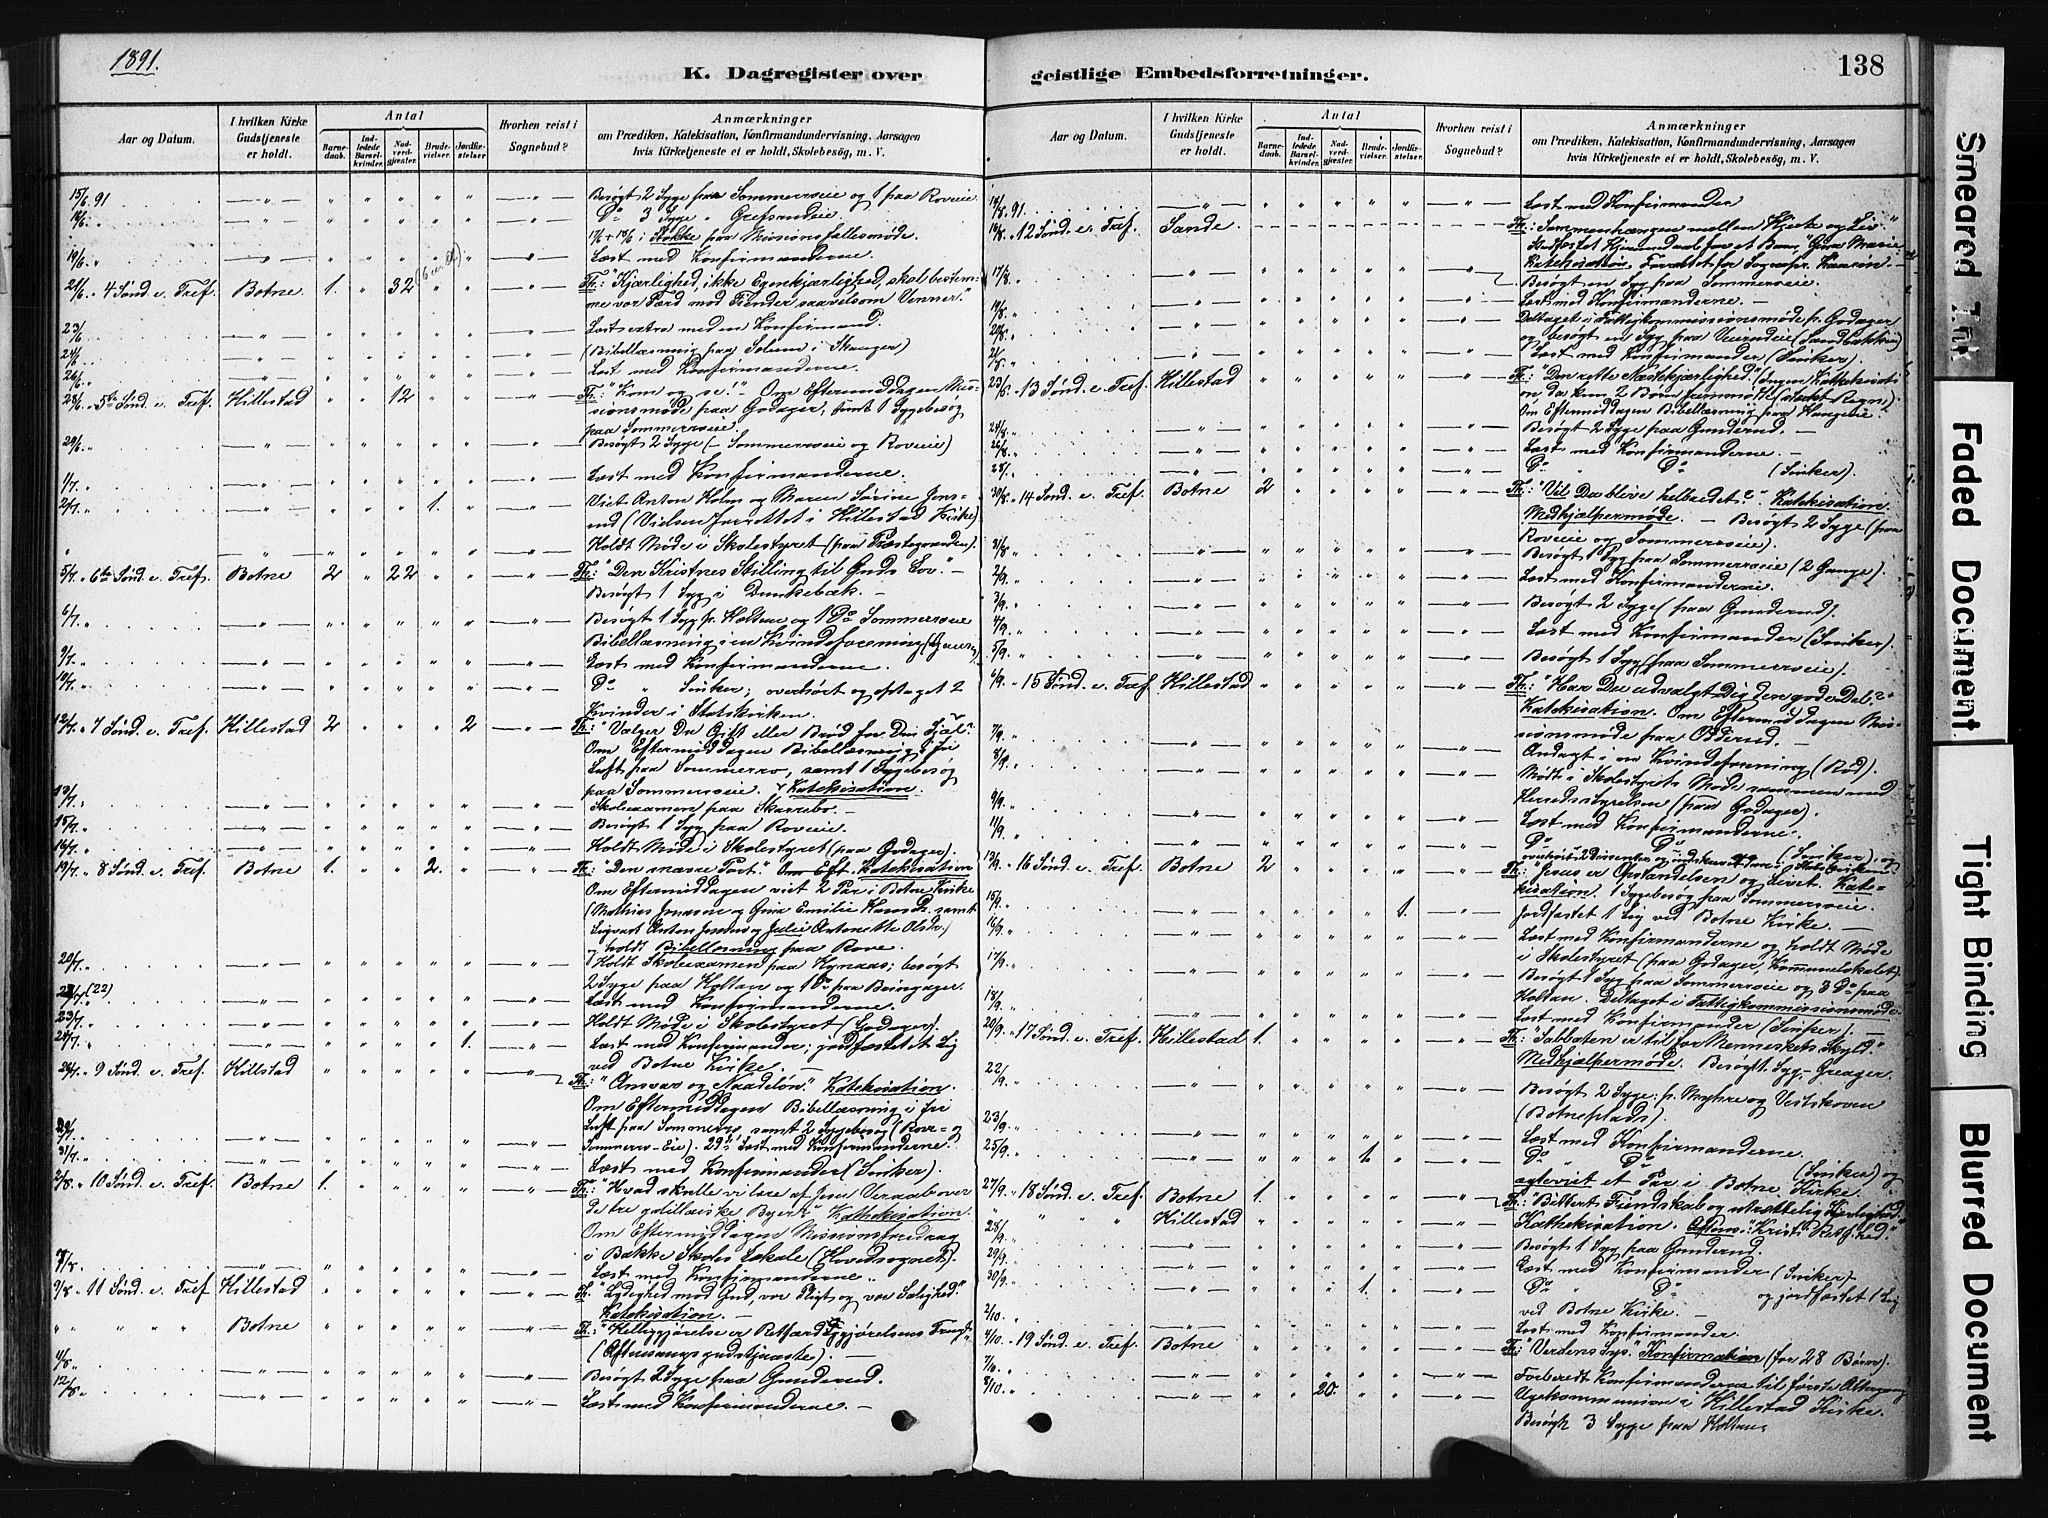 1891.
K. Dagregister over
Aar og Datum.
I hvilken Kirke Gudstjeneste er holdt.
Antal
Barnedaab.
Indledede Barselkvinder.
Nadverdgjæster.
Brudevielser.
Jordfæstelser.
Hvorhen reist i Sognebud?
Anmærkninger
om Prædiken, Katekisation, Konfirmandundervisning, Aarsagen
hvis Kirketjeneste ei er holdt, Skolebesøg, m. V.
15/6 91 Besøgt 2 Syge paa Sommerroeie og 1 paa Roveie
Do 3 Syge " Grefsrudeie
i Stokke paa Missionsfællesmøde.
19/6 Læst med Konfirmanderne.
21/6 " 4 Sønd. e. Tref. Botne 1. 32 Th.: "Kjærlighed, ikke Egenkjærlighed, skal bestemme vor Færd mod Fiender saavelsom Venner."
23/6 Læst extra med en Konfirmand.
24/6 (Bibellæsning paa Solum i Skauger)
26/6 Læst med Konfirmanderne.
28/6 " 5te Sønd. e. Tref. Hillestad 12 Th.: "Kom og se!" Om Eftermiddagen Missionsmøde paa Godager, samt 1 Sygebesøg
paa Sommerroeie.
29/6 Besøgt 2 Syge (Sommerroeie og Roveie)
1/7 Læst med Konfirmanderne.
2/7 1. Viet Anton Holm og Maren Sørine Jens-
(Vielsen forrettet i Hillestad Kirke)
Holdt Møde i Skolestyret (paa Præstegaarden).
5/7 " 6te Sønd. e. Tref. Botne 2 22 Th.: "Den Kristnes Stilling til Guds Lov."
Besøgt 1 Syg i Dunkebæk.
6/7 Besøgt 1 Syg p. Holtan og 1 Do Sommerroeie
Bibellæsning i en Kvindeforening
9/7 Læst med Konfirmanderne.
10/7 Do " Sinker; overhørt og optaget 2
Kvinder i Statskirken.
12/7 " 7 Sønd. e. Tref. Hillestad 2 2 Th.: "Vælger Du Gift eller Brød for Din Sjæl"
Om Eftermiddagen Bibellæsning i fri
Luft paa Sommerro, samt 1 Sygebesøg
paa Sommerroeie. Katekisation.
13/7 Skoleexamen paa Skarrebo.
15/7 Besøgt 1 Syg paa Roveie.
16/7 Holdt Møde i Skolestyret (paa Godager).
19/7 " 8 Sønd. e. Tref. Botne 1. 2. Th.: "Den snævre Port." Katekisation
Om Eftermiddagen viet 2 Par i Botne Kirke
og holdt Bibellæsning paa Rove.
20/7 Holdt Skoleexamen paa Kynaas; besøgt
2 Syge paa Holtan og 1 Do paa Bringager.
(22) Læst med Konfirmanderne.
23/7 Holdt Møde i Skolestyret (Godager).
24/7 1. Læst med Konfirmander; jordfæstet et Lig
ved Botne Kirke.
26/7 9 Sønd. e. Tref. Hillestad Th.: "Ansvar og Naadeløn." Katekisation.
Om Eftermiddagen Bibellæsning i fri
Luft paa Sommerro, samt 2 Sygebesøg (Rove- og
Sommerro-Eie). 29/7 Læst med Konfirmanderne.
31/7 Læst med Konfirmander (Sinker).
2/8 " 10 Sønd. e. Tref. Botne 1. Th.: "Hvad skulle vi lære af Jesu Veraab over
de tre galilæiske Byer" Kathekisation.
Om Eftermiddagen Missionsforedrag
i Bakke Skoles Lokale (Hovedsognet).
Læst med Konfirmanderne.
9/8 " 11 Sønd. e. Tref. Hillestad Th.: "Lydighed mod Gud, vor Pligt og vor Salighed."
Katekisation.
Botne Th.: "Helliggjørelse er Retfærdiggjørelsens Frugt"
(Aftensangsgudstjeneste).
Besøgt 2 Syge paa Gunderud.
12/8 Læst med Konfirmanderne.
geistlige Embedsforretninger.
138
Aar og Datum.
I hvilken Kirke Gudstjeneste er holdt.
Antal
Barnedaab.
Indledede Barselkvinder.
Nadverdgjæster.
Brudevielser.
Jordfæstelser.
Hvorhen reist i Sognebud?
Anmærkninger
om Prædiken, Katekisation, Konfirmandundervisning, Aarsagen
hvis Kirketjeneste ei er holdt, Skolebesøg, m. V.
14/8 91. Læst med Konfirmander
16/8 " 12 Sønd. e. Tref. Sande Th.: "Sammenhængen mellem Hjerte og Liv"
Stadfæstet Hjemmedaab for et Barn,
Katekisation. Forrettet for Sognepr.
17/8 Besøgt en Syg paa Sommerroeie.
19/8 Læst med Konfirmanderne.
20/8 Deltaget i Fattigkommissionsmøde p. Godager
og besøgt en Syg paa
21/8 Læst med Konfirmander (Sinker).
23/8 13 Sønd. e. Tref. Hillestad Th.: "Den rette Næstekjærlighed."
Om Eftermiddagen Bibellæsning paa
24/8 Besøgt 2 Syge paa Gunderud.
26/8 Læst med Konfirmanderne.
28/8 Do Do (Sinker).
30/8 " 14 Sønd. e. Tref. Botne 2 Th.: "Vil Du blive helbredet?" Katekisation.
Medhjælpermøde. Besøgt 2 Syge (paa
Roveie og Sommerroeie).
31/8 Besøgt 1 Syg paa Sommerroeie (2 Gange).
2/9 Læst med Konfirmanderne.
3/9 Besøgt 2 Syge (paa Gunderud).
4/9 Læst med Konfirmander (Sinker).
5/9 Besøgt 1 Syg (paa Sommerroeie).
6/9 15 Sønd. e. Tref. Hillestad Th.: "Har Du udvalgt Dig den gode Del?"
Katekisation. Om Eftermiddagen Missionsmøde paa Odderud.
7/9 Andagt i en Kvindeforening (Rød).
8/9 Mødt i Skolestyrets Møde sammen med
Herredsstyrelsen (paa Godager).
9/9 Læst med Konfirmanderne.
11/9 Do Do (Sinker), og
13/9 " 16 Sønd. e. Tref. Botne 2 Th.: Jesus er Opstandelsen og Livet. Katekisation. 1 Sygebesøg paa Sommerroeie.
15/9 1. Jordfæstet 1 Lig ved Botne Kirke.
16/9 Læst med Konfirmanderne og holdt Møde
i Skolestyret (paa Godager, Kommunelokalet).
17/9 Besøgt 1 Syg paa Sommerroeie og 3 Do paa
Holtan. Deltaget i Fattigkommissionsmøde
18/9 Læst med Konfirmander (Sinker).
20/9 " 17 Sønd. e. Tref. Hillestad 1. Th.: "Sabbaten er til for Menneskets Skyld."
Medhjælpermøde. Besøgt 1 Syg, Greager.
22/9 Besøgt 2 Syge: p. Myhre og Vestskoven
(Botneplads).
23/9 Læst med Konfirmanderne.
25/9 1. Do Do (Sinker) og
ægteviet et Par i Botne Kirke.
27/9 " 18 Sønd. e. Tref. Botne 1. Th.: "Bittert Fiendskab og utrættelig Kjærlighed."
Hillestad Kathekisation. Aftens.: "Kristi Retfdhed."
28/9 Besøgt 1 Syg paa Gunderud.
29/9 Læst med Konfirmander (Sinker)
30/9 1. Do Do og jordfæstet 1 Lig
ved Botne Kirke.
2/10 Læst med Konfirmander.
4/10 19 Sønd. e. Tref. Botne Th.: "Verdens Lys." Konfirmation (for 28 Børn).
7/10 Forberedt Konfirmanderne til første Altergang
8/10 20. Ugekommunion i Hillestad Kirke.
Besøgt 3 Syge paa Holtan
Smeared Ink
Faded Document
Tight Binding
Blurred Document